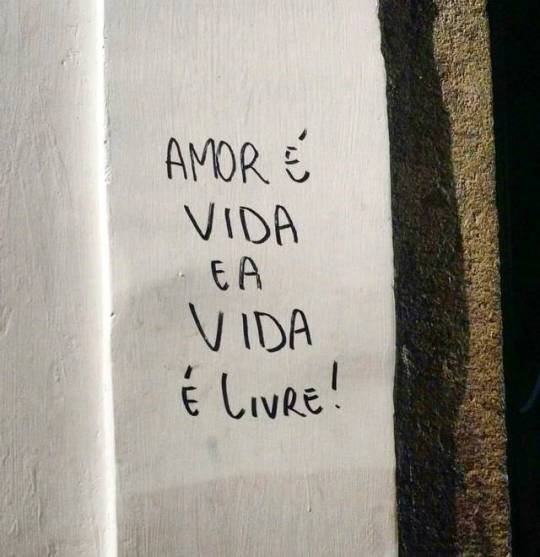 AMOR É
VIDA
E A
VIDA
É LIVRE!